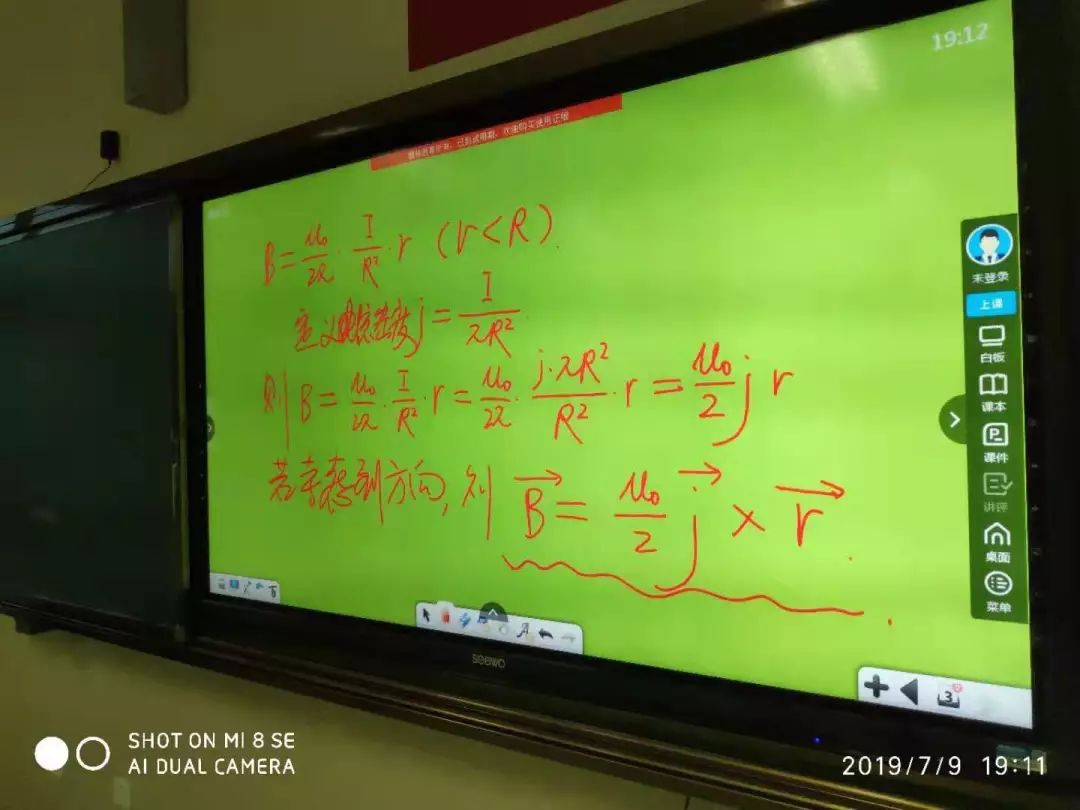 19:12
B = μ₀/2π · I/R² · r (r<R).
定义电流密度 j = I/πR².
则 B = μ₀/2π · I/R² · r = μ₀/2π · j·πR²/R² · r = μ₀/2 j r
若考虑到方向, 则 B⃗ = μ₀/2 j⃗ × r⃗.
未登录
上课
白板
课本
课件
讲评
桌面
菜单
3
seewo
SHOT ON MI 8 SE
AI DUAL CAMERA
2019/7/9 19:11